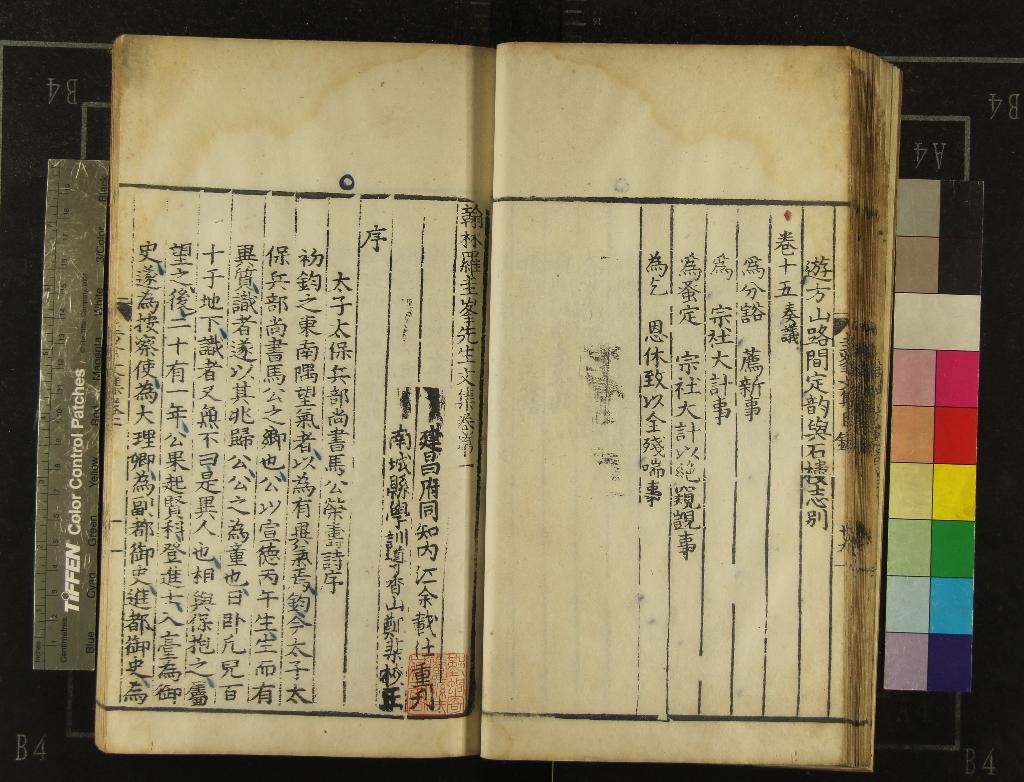 遊方山路間定韵與石樓志別
卷十五 奏議
為分豁 薦新事
為 宗社大計事
為蚤定 宗社大計以絕窺覬事
為乞 恩休致以全殘喘事
翰林羅圭峯先生文集卷第一
建昌府同知內江余載仕重刋
南城縣學訓導香山鄭
序
太子太保兵部尚書馬公榮壽詩序
初鈞之東南隅望氣者以為有異氣焉鈞今太子太
保兵部尚書馬公之鄉也公以宣德丙午生生而有
異質識者遂以其兆歸公公之為童也日卧凡兒百
十于地下識者又無不曰是異人也相與保抱之
望之後二十有一年公果起賢科登進士入臺為御
史遂為按察使為大理卿為副都御史進都御史為
TIFFEN Color Control Patches
Blue
Cyan
Green
Yellow
Red
Magenta
White
3/Color
Black
Centimetres
Inches
B4
B4
A4
B4
B4